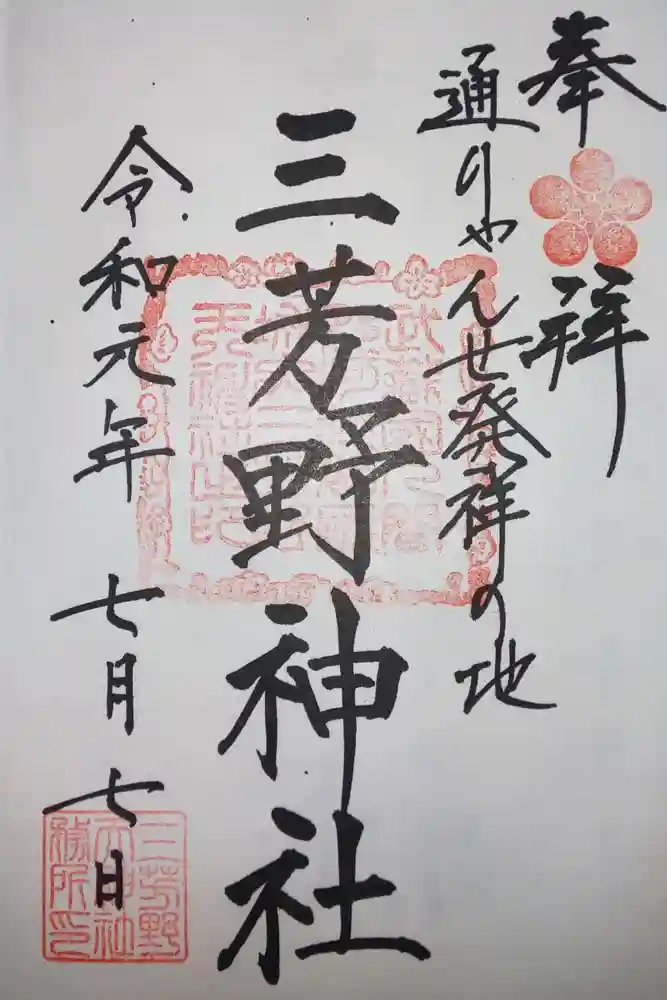 奉拝
通りやんせ発祥の地
三芳野神社
令和元年 七月 七日
三芳野
天神社
務所印